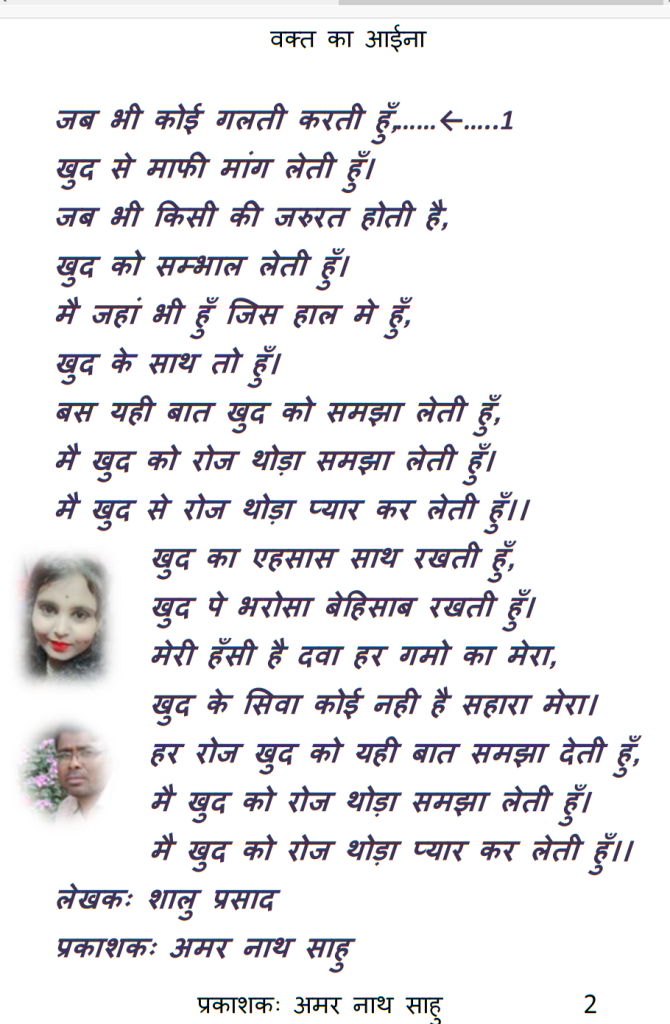 वक्त का आईना
जब भी कोई गलती करती हुँ,......←.....1
खुद से माफी मांग लेती हुँ।
जब भी किसी की जरुरत होती है,
खुद को सम्भाल लेती हुँ।
मै जहां भी हुँ जिस हाल मे हुँ,
खुद के साथ तो हुँ।
बस यही बात खुद को समझा लेती हुँ,
मै खुद को रोज थोड़ा समझा लेती हुँ।
मै खुद से रोज थोड़ा प्यार कर लेती हुँ।।
खुद का एहसास साथ रखती हुँ,
खुद पे भरोसा बेहिसाब रखती हुँ।
मेरी हँसी है दवा हर गमो का मेरा,
खुद के सिवा कोई नही है सहारा मेरा।
हर रोज खुद को यही बात समझा देती हुँ,
मै खुद को रोज थोड़ा समझा लेती हुँ।
मै खुद को रोज थोड़ा प्यार कर लेती हुँ।।
लेखकः शालु प्रसाद
प्रकाशकः अमर नाथ साहु
प्रकाशकः अमर नाथ साहु 2